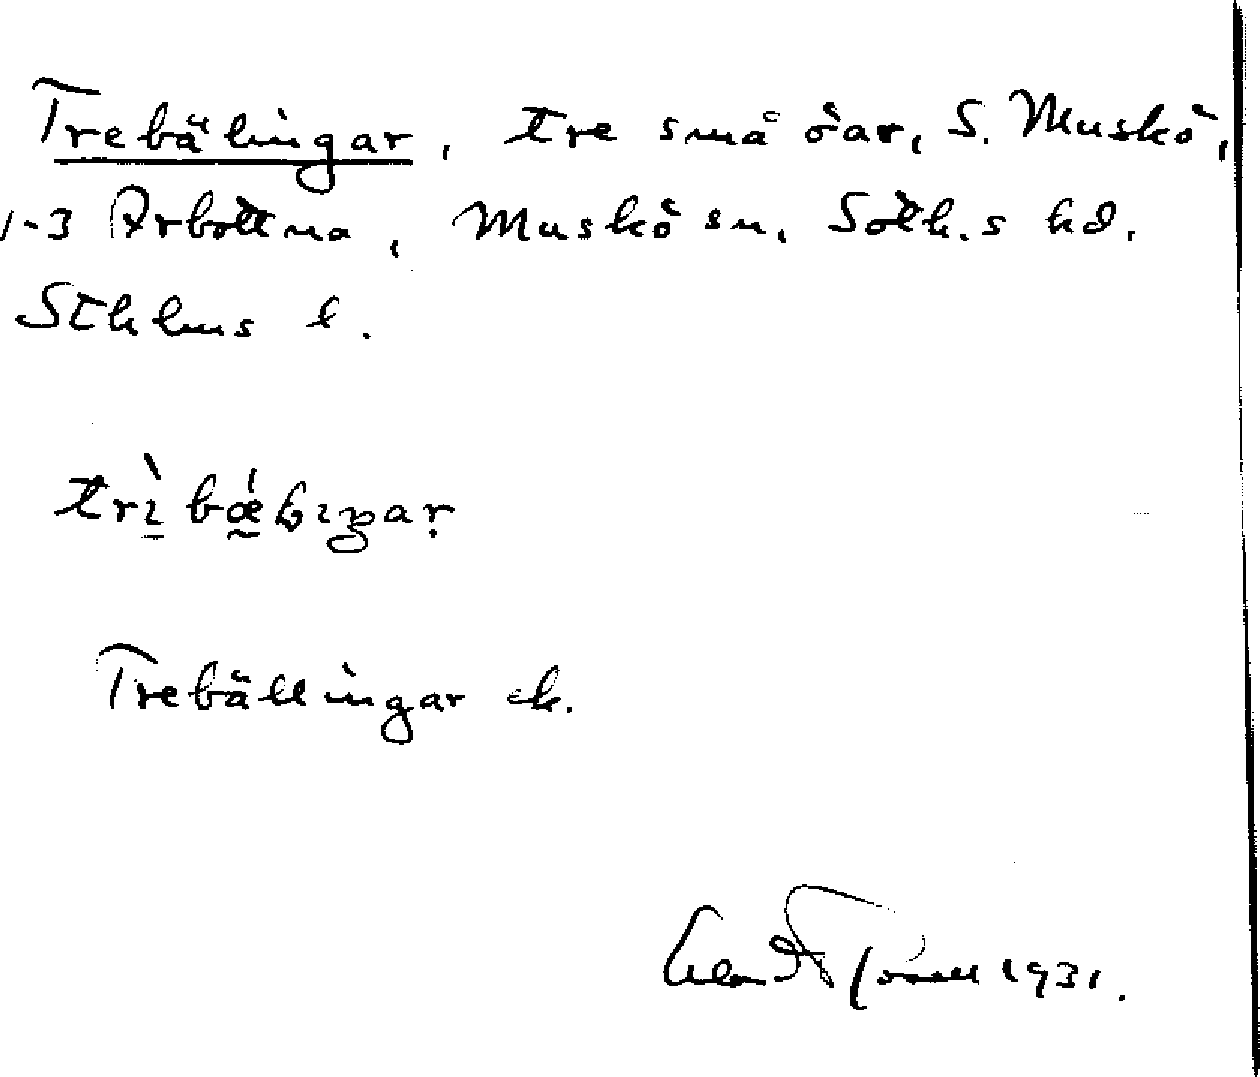 Trebälingar, tre små öar, S. Muskö,
1-3 Arbottna, Muskö sn, Soth.s hd.
Sthlms l.
trì bǽlıŋar
Trebällingar ek.
1931.